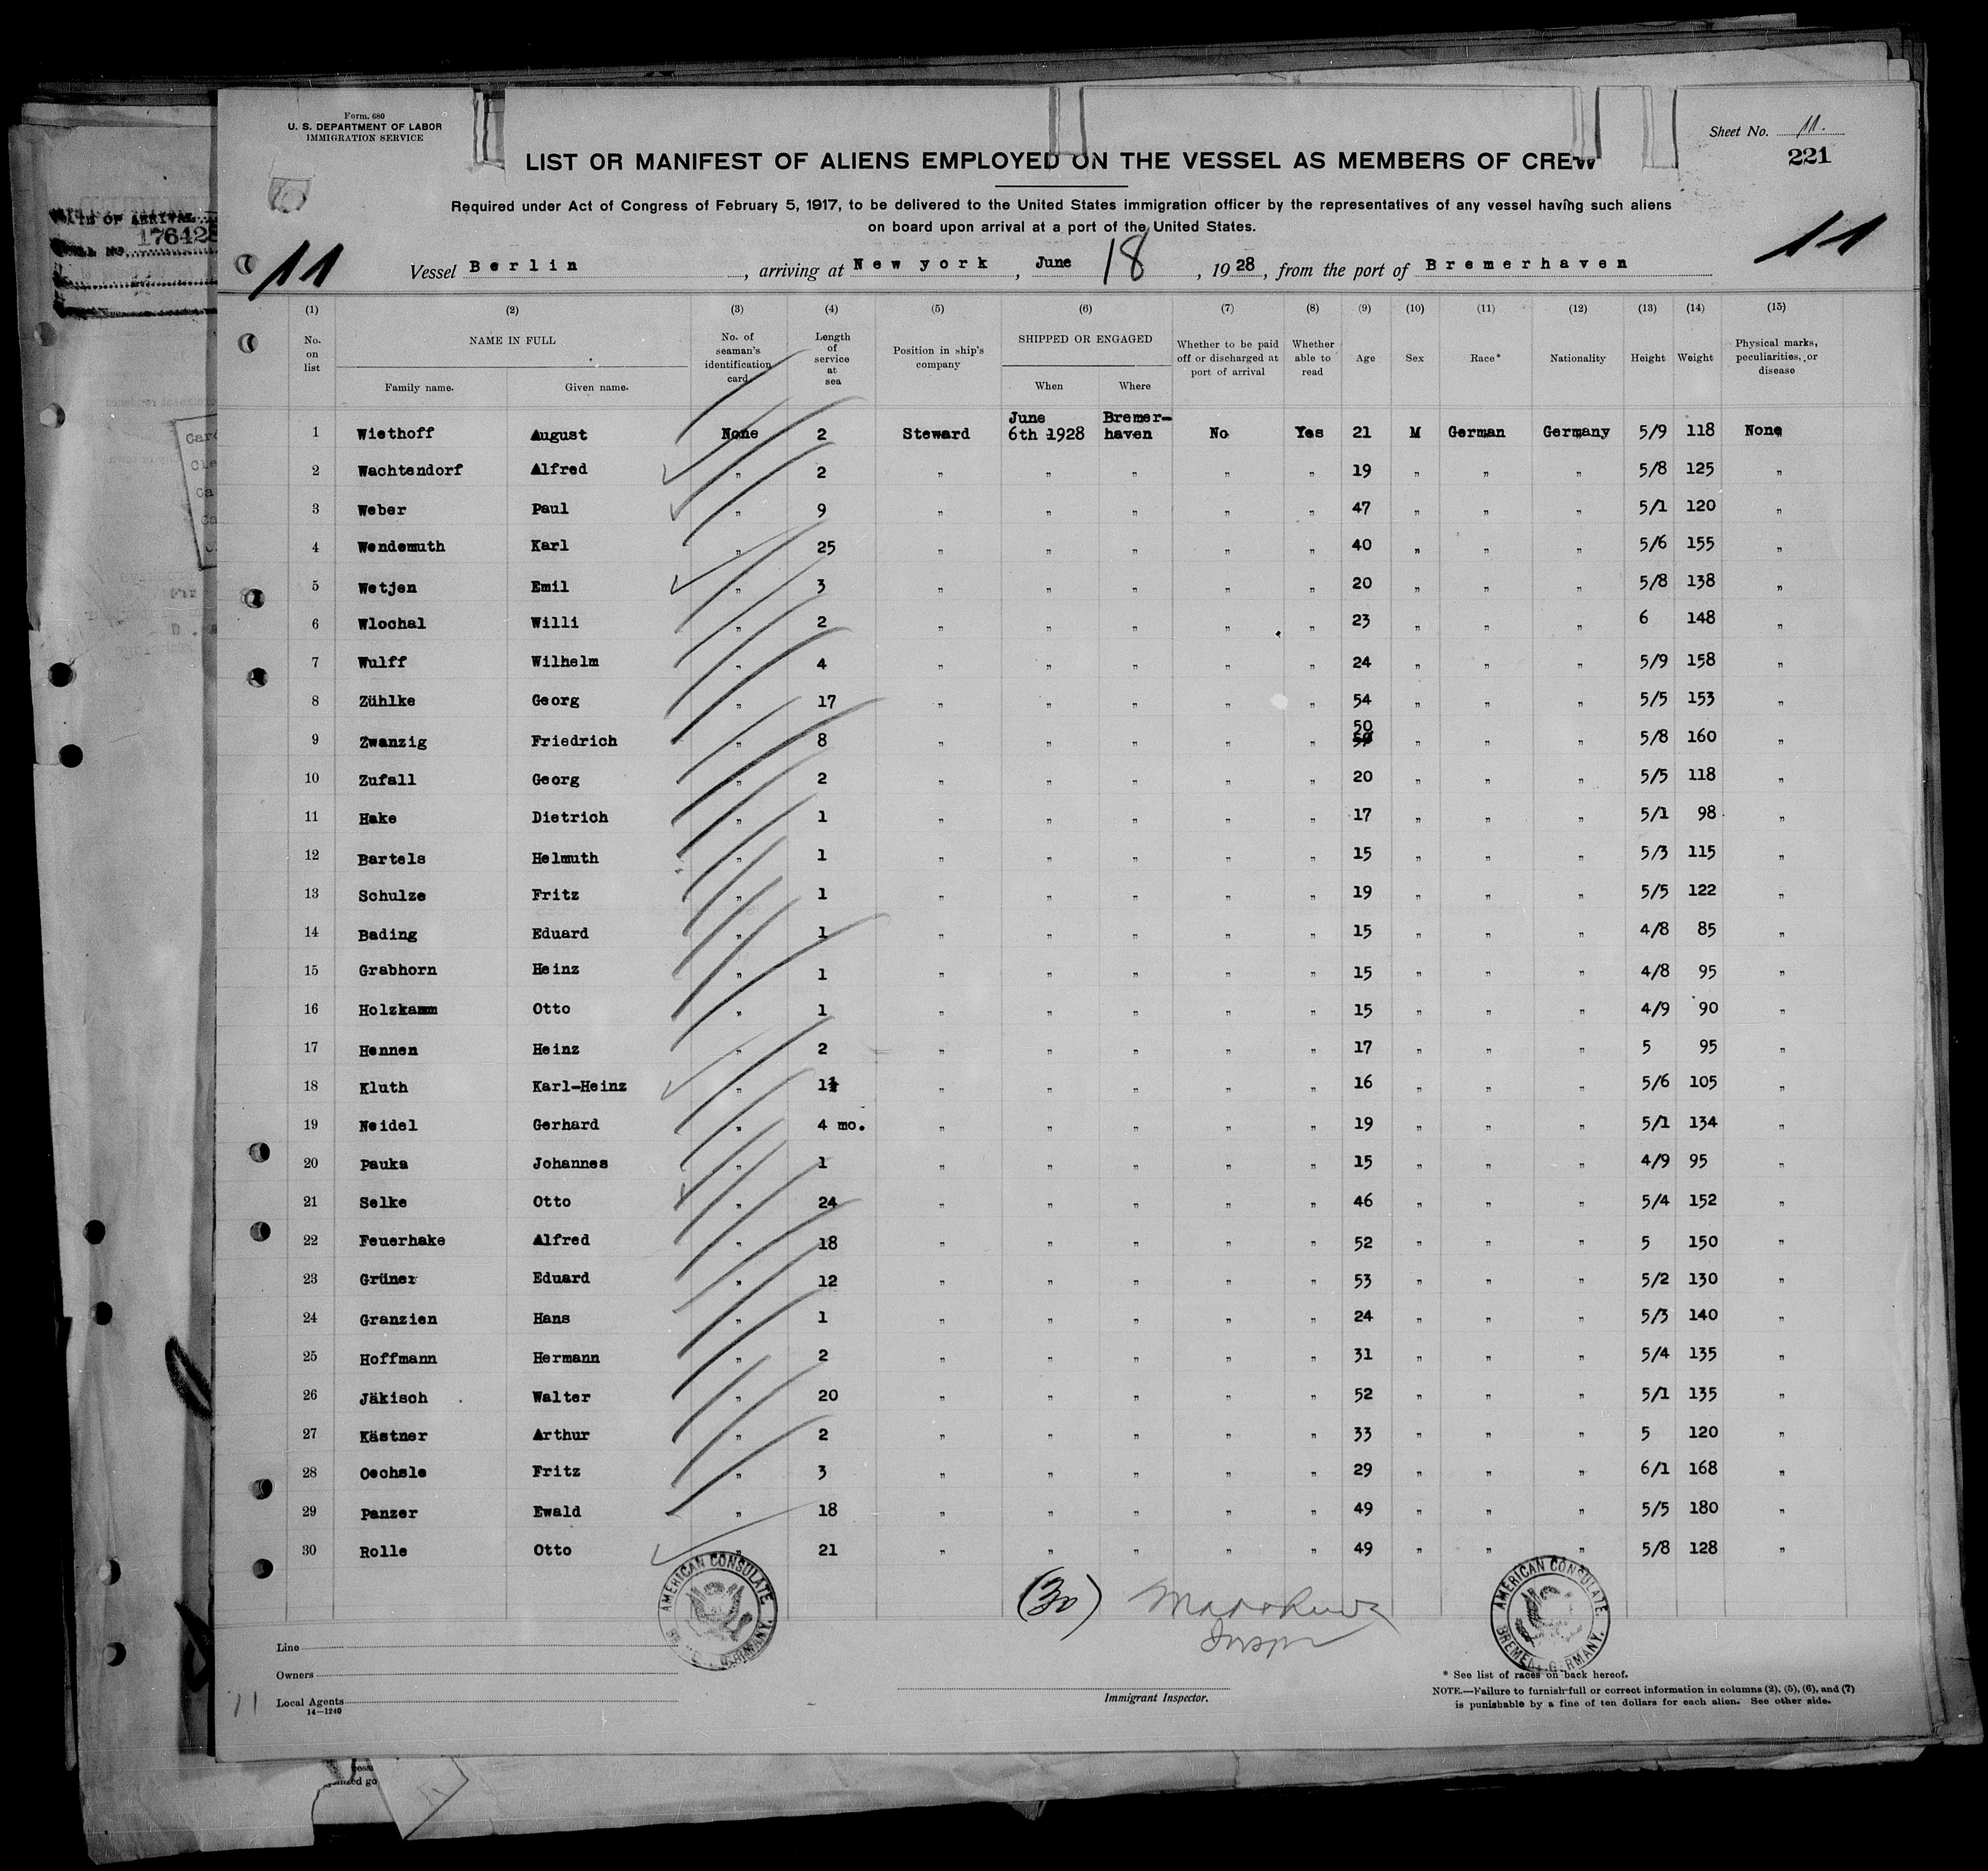 Form. 680
U. S. DEPARTMENT OF LABOR
IMMIGRATION SERVICE
Sheet No. 11.
221
LIST OR MANIFEST OF ALIENS EMPLOYED ON THE VESSEL AS MEMBERS OF CREW
Required under Act of Congress of February 5, 1917, to be delivered to the United States immigration officer by the representatives of any vessel having such aliens
on board upon arrival at a port of the United States.
11 Vessel Berlin, arriving at New york, June 18, 1928, from the port of Bremerhaven 11
(1) (2) (3) (4) (5) (6) (7) (8) (9) (10) (11) (12) (13) (14) (15)
No. on list NAME IN FULL Family name. Given name. No. of seaman's identification card Length of service at sea Position in ship's company SHIPPED OR ENGAGED When Where Whether to be paid off or discharged at port of arrival Whether able to read Age Sex Race* Nationality Height Weight Physical marks, peculiarities, or disease
1 Wiethoff August None 2 Steward June 6th 1928 Bremer-haven No Yes 21 M German Germany 5/9 118 None
2 Wachtendorf Alfred " 2 " " " " " 19 " " " 5/8 125 "
3 Weber Paul " 9 " " " " " 47 " " " 5/1 120 "
4 Wendemuth Karl " 25 " " " " " 40 " " " 5/6 155 "
5 Wetjen Emil " 3 " " " " " 20 " " " 5/8 138 "
6 Wlochal Willi " 2 " " " " " 23 " " " 6 148 "
7 Wulff Wilhelm " 4 " " " " " 24 " " " 5/9 158 "
8 Zühlke Georg " 17 " " " " " 54 " " " 5/5 153 "
9 Zwanzig Friedrich " 8 " " " " " 50 " " " 5/8 160 "
10 Zufall Georg " 2 " " " " " 20 " " " 5/5 118 "
11 Hake Dietrich " 1 " " " " " 17 " " " 5/1 98 "
12 Bartels Helmuth " 1 " " " " " 15 " " " 5/3 115 "
13 Schulze Fritz " 1 " " " " " 19 " " " 5/5 122 "
14 Bading Eduard " 1 " " " " " 15 " " " 4/8 85 "
15 Grabhorn Heinz " 1 " " " " " 15 " " " 4/8 95 "
16 Holzkamm Otto " 1 " " " " " 15 " " " 4/9 90 "
17 Hennen Heinz " 2 " " " " " 17 " " " 5 95 "
18 Kluth Karl-Heinz " " " " " " 16 " " " 5/6 105 "
19 Neidel Gerhard " 4 mo. " " " " " 19 " " " 5/1 134 "
20 Pauka Johannes " 1 " " " " " 15 " " " 4/9 95 "
21 Selke Otto " 24 " " " " " 46 " " " 5/4 152 "
22 Feuerhake Alfred " 18 " " " " " 52 " " " 5 150 "
23 Grüner Eduard " 12 " " " " " 53 " " " 5/2 130 "
24 Granzien Hans " 1 " " " " " 24 " " " 5/3 140 "
25 Hoffmann Hermann " 2 " " " " " 31 " " " 5/4 135 "
26 Jäkisch Walter " 20 " " " " " 52 " " " 5/1 135 "
27 Kästner Arthur " 2 " " " " " 33 " " " 5 120 "
28 Oechsle Fritz " 3 " " " " " 29 " " " 6/1 168 "
29 Panzer Ewald " 18 " " " " " 49 " " " 5/5 180 "
30 Rolle Otto " 21 " " " " " 49 " " " 5/8 128 "
AMERICAN CONSULATE, GERMANY.
(30)
Inspr
AMERICAN CONSULATE, BREMEN, GERMANY.
Line
Owners
Local Agents
14—1240
11
Immigrant Inspector.
* See list of races on back hereof.
NOTE.—Failure to furnish full or correct information in columns (2), (5), (6), and (7)
is punishable by a fine of ten dollars for each alien. See other side.
OF ARRIVAL
17642